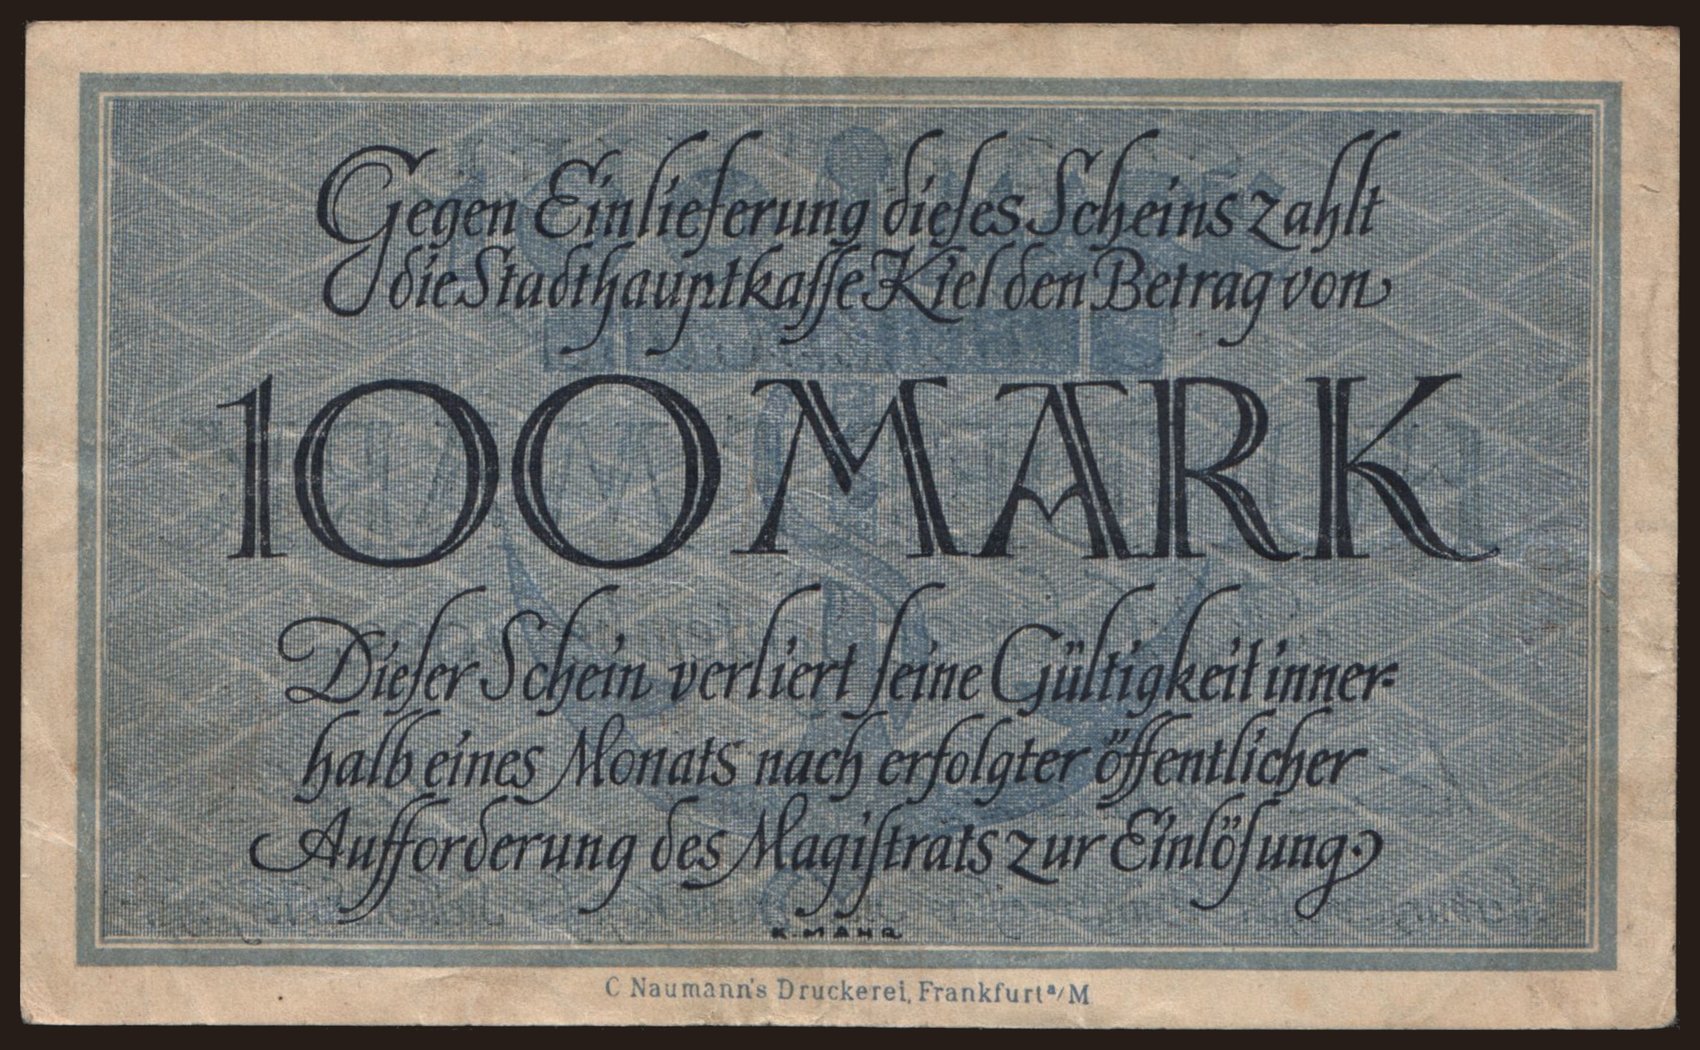 Gegen Einlieferung dieses Scheins zahlt
die Stadthauptkasse Kiel den Betrag von
100 MARK
Dieser Schein verliert seine Gültigkeit inner-
halb eines Monats nach erfolgter öffentlicher
Aufforderung des Magistrats zur Einlösung.
K. MAHR
C Naumann's Druckerei, Frankfurt a/M